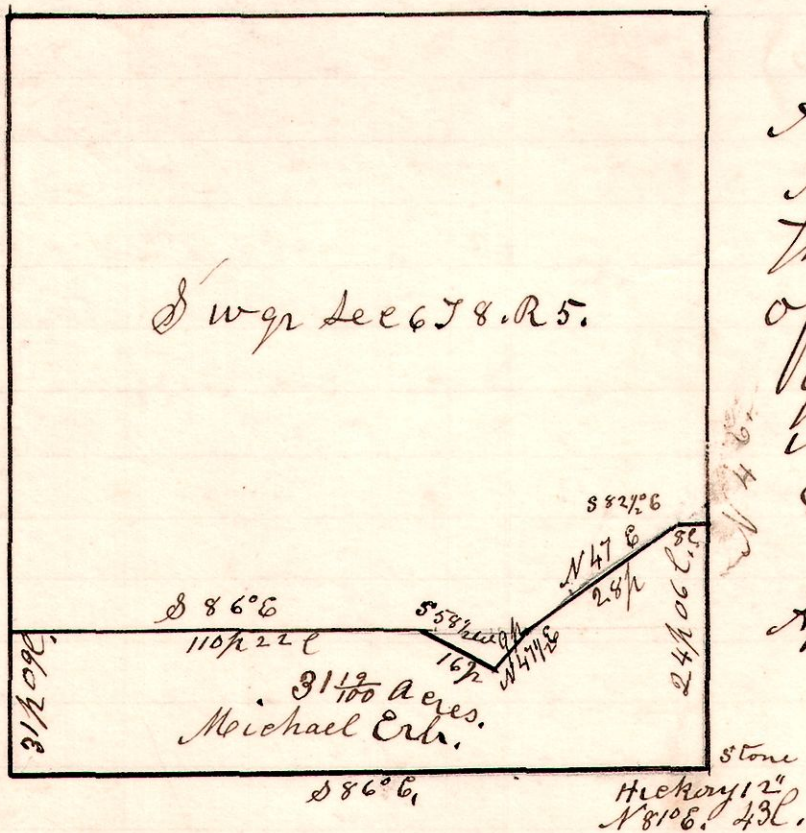 S w qr Sec 6 T 8. R 5.
N 4 E
S 82 1/2° E
N 47 E
28 p
8 l.
S 86° E
110 p 22 l
S 58 1/2
16 p
9 p
N 47 1/2 E
24 p 06 l.
31 p 09 l.
31 19/100 Acres.
Michael Erb.
S 86° E,
Stone
Hickory 12"
N 81° E. 43 l.